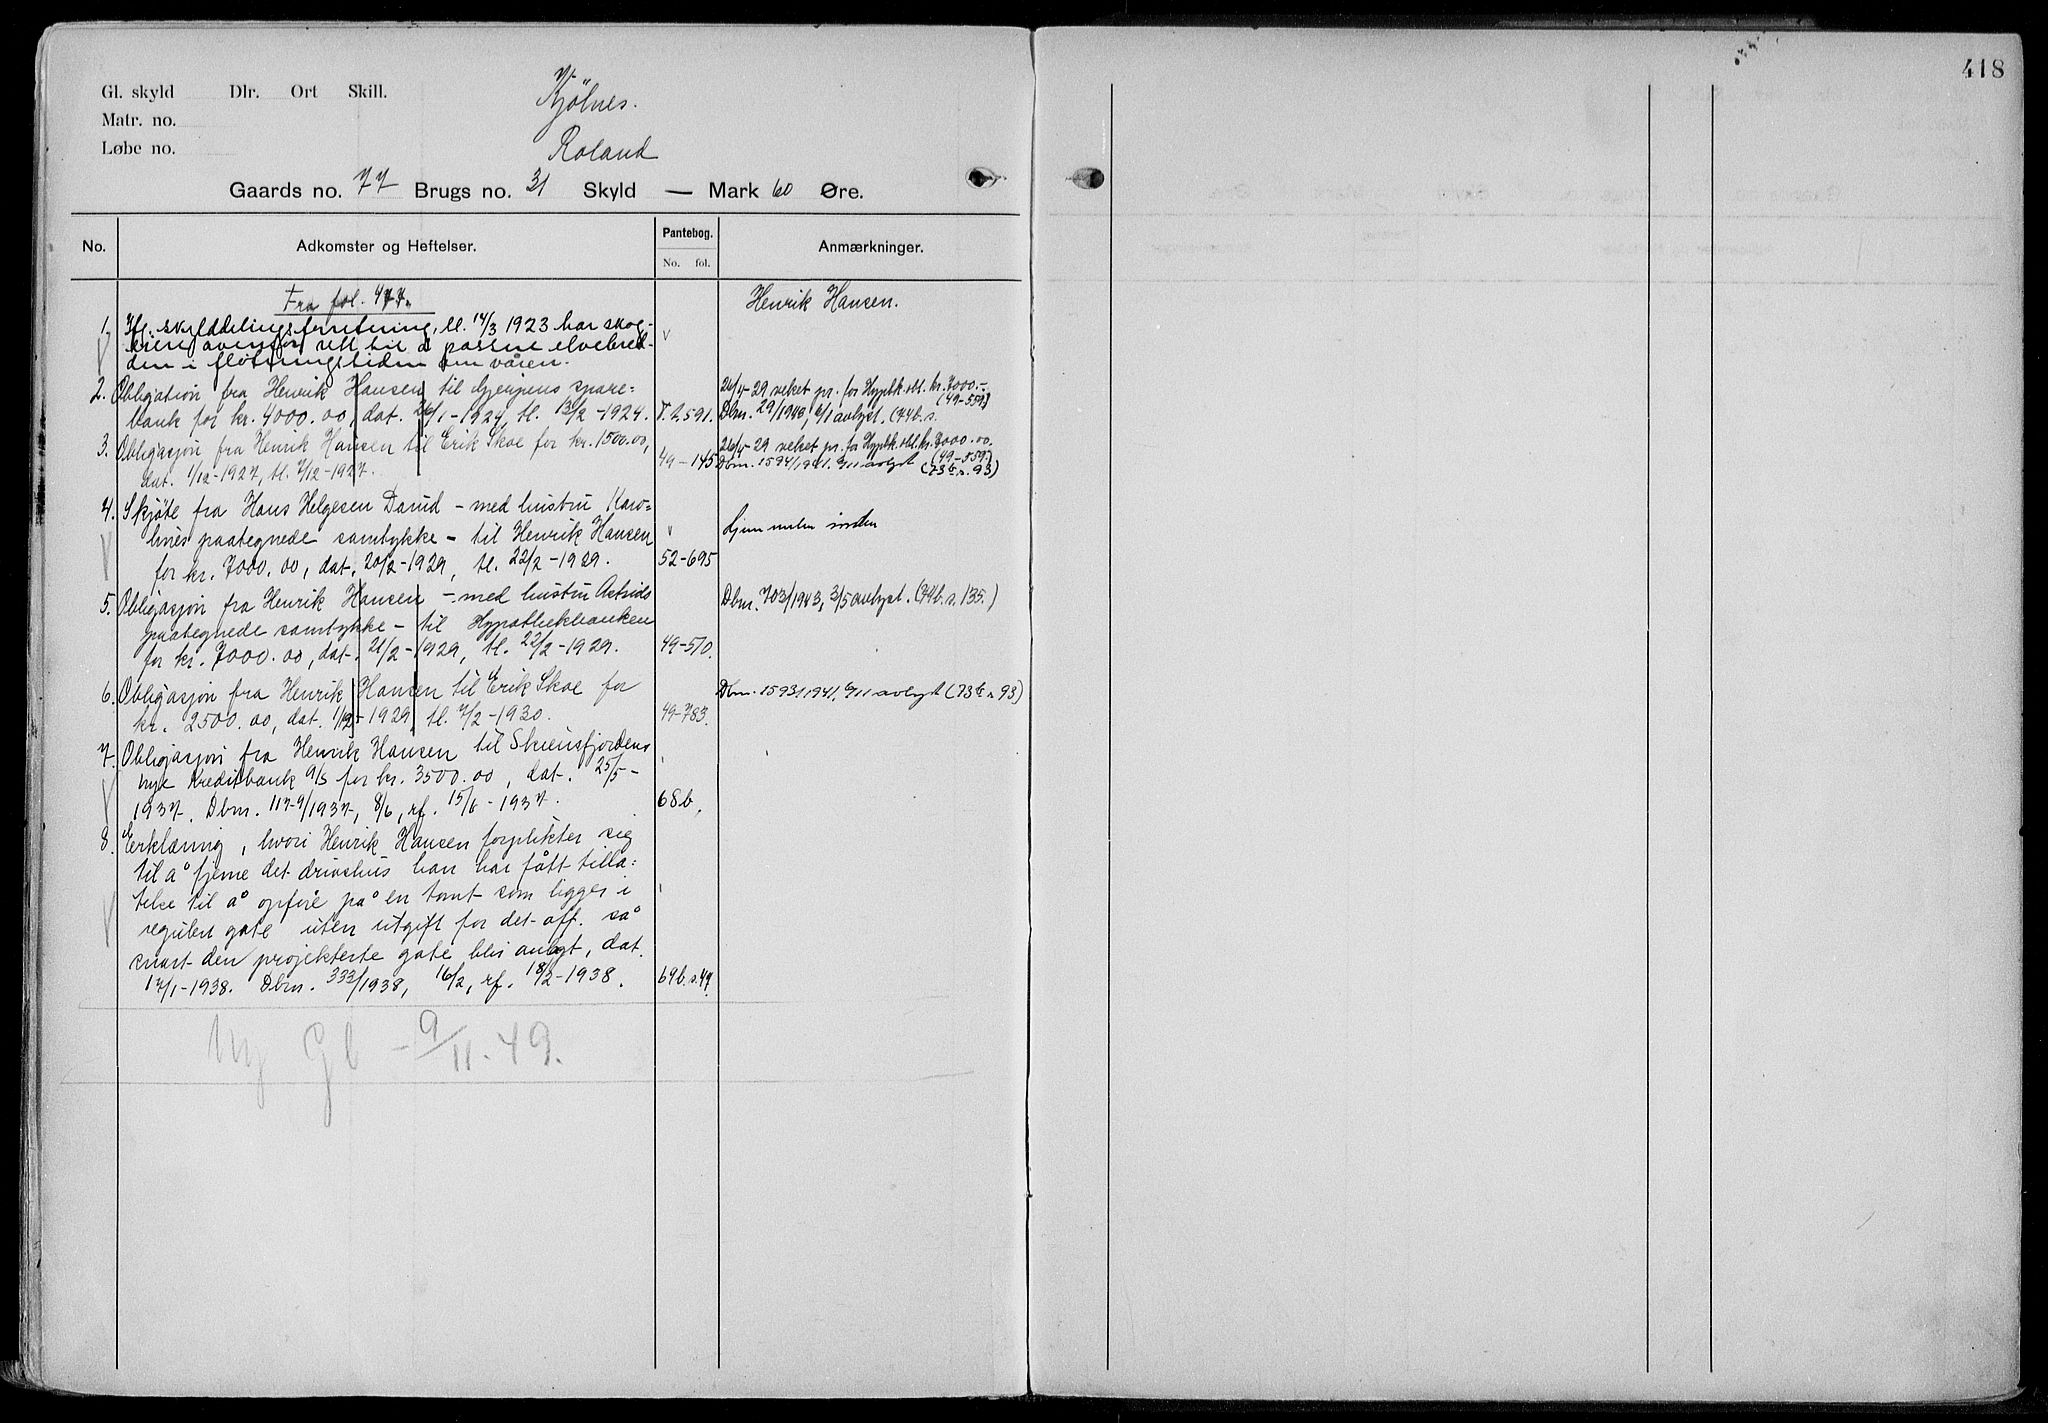 418
Gl. skyld Dlr. Ort Skill.
Kjölnes.
Matr. no.
Løbe no.
Roland
Gaards no. 77 Brugs no. 31 Skyld — Mark 60 Øre.
No. Adkomster og Heftelser. Pantebog. Anmærkninger.
No. fol.
Fra fol. 477. Henrik Hansen.
1. Ifg. skylddelingsforretning, tl. 14/3 1923 har skog-
eiere ovenfor rett til å passere elvebred-
den i fløtningstiden om våren.
2. Obligation fra Henrik Hansen til Gjerpens spare=
bank for kr. 4000.00, dat. 26/1-1924, tl. 13/2-1924. T.2.591.
26/4-29 veket pr. for Hypthk.obl. kr. 7000.-
(49-559)
Dbnr. 29/1943, 6/1 avlyst. (74b. s.
3. Obligasjon fra Henrik Hansen til Erik Skoe for kr. 1500.00,
dat. 1/12-1927, tl. 7/12-1927. 49-145
26/4-29 veket pr. for Hypthk.obl. kr. 7000.00.
(49-559.)
Dbnr. 1594/1941. 6/11 avlyst (73b s. 93)
4. Skjöte fra Hans Helgesen Danid - med hustru Karo=
lines paategnede samtykke - til Henrik Hansen
for kr. 7000.00, dat. 20/2-1929, tl. 22/2-1929. 52-695
Hjemmelen inden
5. Obligasjon fra Henrik Hansen - med hustru Astrids
paategnede samtykke - til Hypothekbanken
for kr. 7000.00, dat. 21/2-1929, tl. 22/2-1929. 49-510.
Dbnr. 703/1943, 3/5 avlyst. (74b. s. 135.)
6. Obligasjon fra Henrik Hansen til Erik Skoe for
kr. 2500.00, dat. 1/12-1929, tl. 7/2-1930. 49-783.
Dbnr. 1593/1941. 6/11 avlyst (73b s 93)
7. Obligasjon fra Henrik Hansen til Skiensfjordens
nye Kreditbank A/S for kr. 3500.00, dat. 25/5-
1937. Dbnr. 1179/1937, 8/6, rf. 15/6-1937. 68b.
8. Erklæring, hvori Henrik Hansen forplikter sig
til å fjerne det drivhus han har fått tilla=
telse til å opföre på en tomt som ligger i
regulert gate uten utgift for det off. så
snart den projekterte gate blir anlagt, dat.
17/1-1938. Dbnr. 333/1938, 16/2, rf. 18/2-1938. 69b. s. 49.
Ny Gb - 9/11-49.